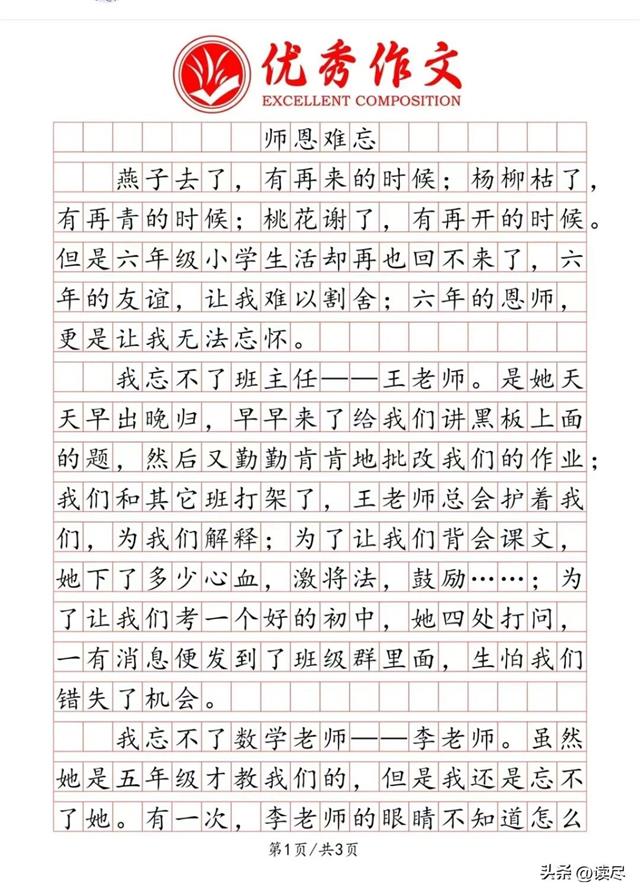 优秀作文
EXCELLENT COMPOSITION
师恩难忘
燕子去了，有再来的时候；杨柳枯了，
有再青的时候；桃花谢了，有再开的时候。
但是六年级小学生活却再也回不来了，六
年的友谊，让我难以割舍；六年的恩师，
更是让我无法忘怀。
我忘不了班主任——王老师。是她天
天早出晚归，早早来了给我们讲黑板上面
的题，然后又勤勤肯肯地批改我们的作业；
我们和其它班打架了，王老师总会护着我
们，为我们解释；为了让我们背会课文，
她下了多少心血，激将法，鼓励……；为
了让我们考一个好的初中，她四处打问，
一有消息便发到了班级群里面，生怕我们
错失了机会。
我忘不了数学老师——李老师。虽然
她是五年级才教我们的，但是我还是忘不
了她。有一次，李老师的眼睛不知道怎么
第1页/共3页
头条 @读尽